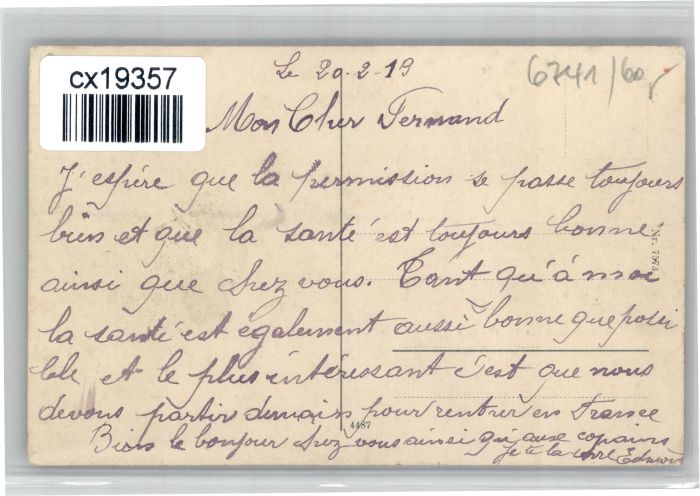 cx19357
Le 20-2-19
6741/60,-
Mon Cher Fernand
J'espère que la permission se passe toujours
bien et que la santé est toujours bonne
ainsi que chez vous. Tant qu'à moi
la santé est également aussi bonne que possi
ble et le plus intéressant c'est que nous
devons partir demain pour rentrer en France
Bien le bonjour chez vous ainsi qu'aux copains
je te la serre Edmond
4487